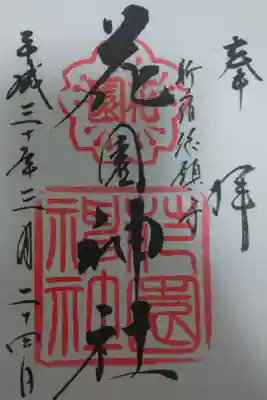 奉拝
新宿総鎮守
花園神社
平成三十年三月二十四日
花園
花園神社